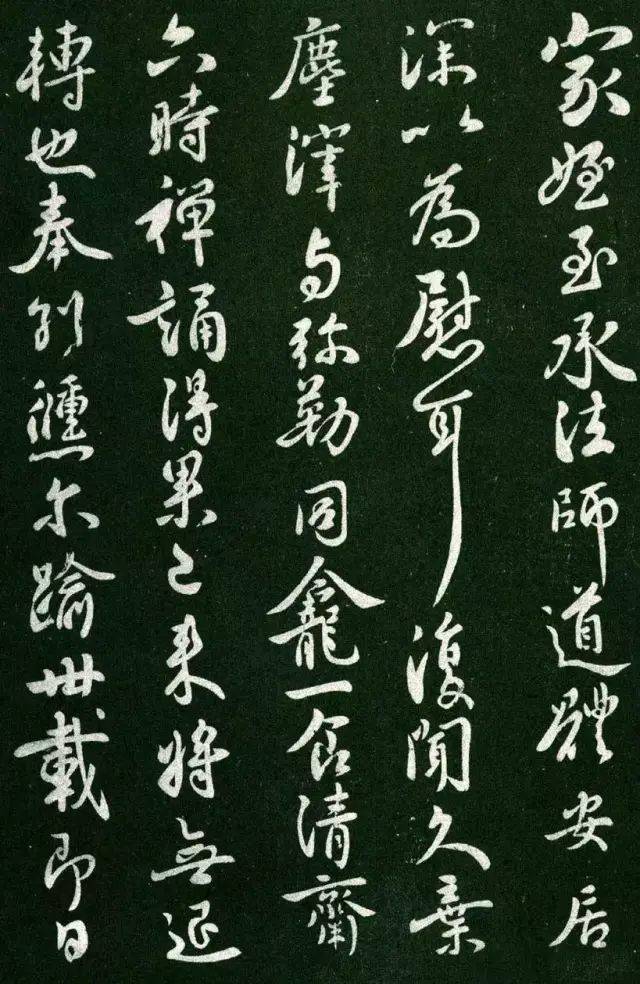 家姪至承法師道體安居
深以為慰耳復聞久棄
塵滓与弥勒同龕一食清齋
六時禪誦得果已來將無退
轉也奉別儵尔踰卅載即日